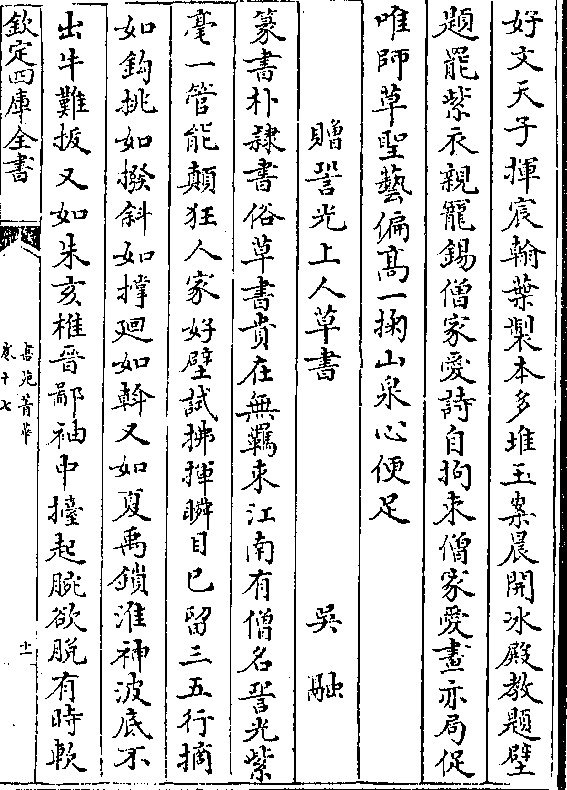 好文天子揮宸翰葉製本多堆玉案晨開冰殿教題壁
題罷紫衣親寵錫僧家愛詩自拘束僧家愛畫亦局促
唯師草聖藝偏高一掬山泉心便足
贈䛒光上人草書　吳融
篆書朴隸書俗草書貴在無羈束江南有僧名䛒光紫
毫一管能顛狂人家好壁試拂揮瞬目已留三五行摘
如鈎挑如撥斜如撑廻如斡又如夏禹鎖淮神波底不
出牛難拔又如朱亥椎晉鄙袖中擡起腕欲脫有時軟
欽定四庫全書
書苑菁華
卷十七
十一